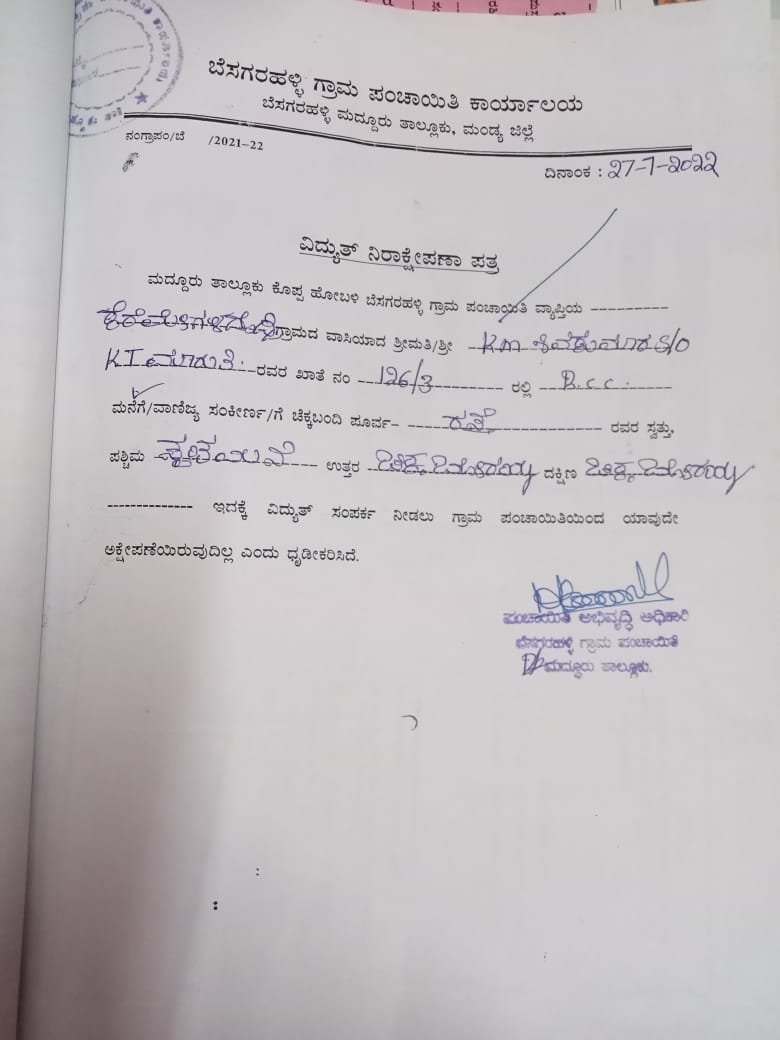 ಬೆಸಗರಹಳ್ಳಿ ಗ್ರಾಮ ಪಂಚಾಯಿತಿ ಕಾರ್ಯಾಲಯ
ಬೆಸಗರಹಳ್ಳಿ ಮದ್ದೂರು ತಾಲ್ಲೂಕು, ಮಂಡ್ಯ ಜಿಲ್ಲೆ
ನಂಗ್ರಾಪಂ/ಬೆ /2021-22
ದಿನಾಂಕ : 27-7-2022
ವಿದ್ಯುತ್ ನಿರಾಕ್ಷೇಪಣಾ ಪತ್ರ
ಮದ್ದೂರು ತಾಲ್ಲೂಕು ಕೊಪ್ಪ ಹೋಬಳಿ ಬೆಸಗರಹಳ್ಳಿ ಗ್ರಾಮ ಪಂಚಾಯಿತಿ ವ್ಯಾಪ್ತಿಯ ---------
ಗ್ರಾಮದ ವಾಸಿಯಾದ ಶ್ರೀಮತಿ/ಶ್ರೀ K.M ಶಿವಕುಮಾರ S/O
K T ಮಾರುತಿ ರವರ ಖಾತೆ ನಂ 126/3 ರಲ್ಲಿ R.c.c.
ಮನೆಗೆ/ವಾಣಿಜ್ಯ ಸಂಕೀರ್ಣ/ಗೆ ಚೆಕ್ಕಬಂದಿ ಪೂರ್ವ- ರಸ್ತೆ ರವರ ಸ್ವತ್ತು,
ಪಶ್ಚಿಮ ಉತ್ತರ ದಕ್ಷಿಣ
-------------- ಇದಕ್ಕೆ ವಿದ್ಯುತ್ ಸಂಪರ್ಕ ನೀಡಲು ಗ್ರಾಮ ಪಂಚಾಯಿತಿಯಿಂದ ಯಾವುದೇ
ಅಕ್ಷೇಪಣೆಯಿರುವುದಿಲ್ಲ ಎಂದು ಧೃಡೀಕರಿಸಿದೆ.
ಪಂಚಾಯಿತಿ ಅಭಿವೃದ್ಧಿ ಅಧಿಕಾರಿ
ಬೆಸಗರಹಳ್ಳಿ ಗ್ರಾಮ ಪಂಚಾಯಿತಿ
ಮದ್ದೂರು ತಾಲ್ಲೂಕು.